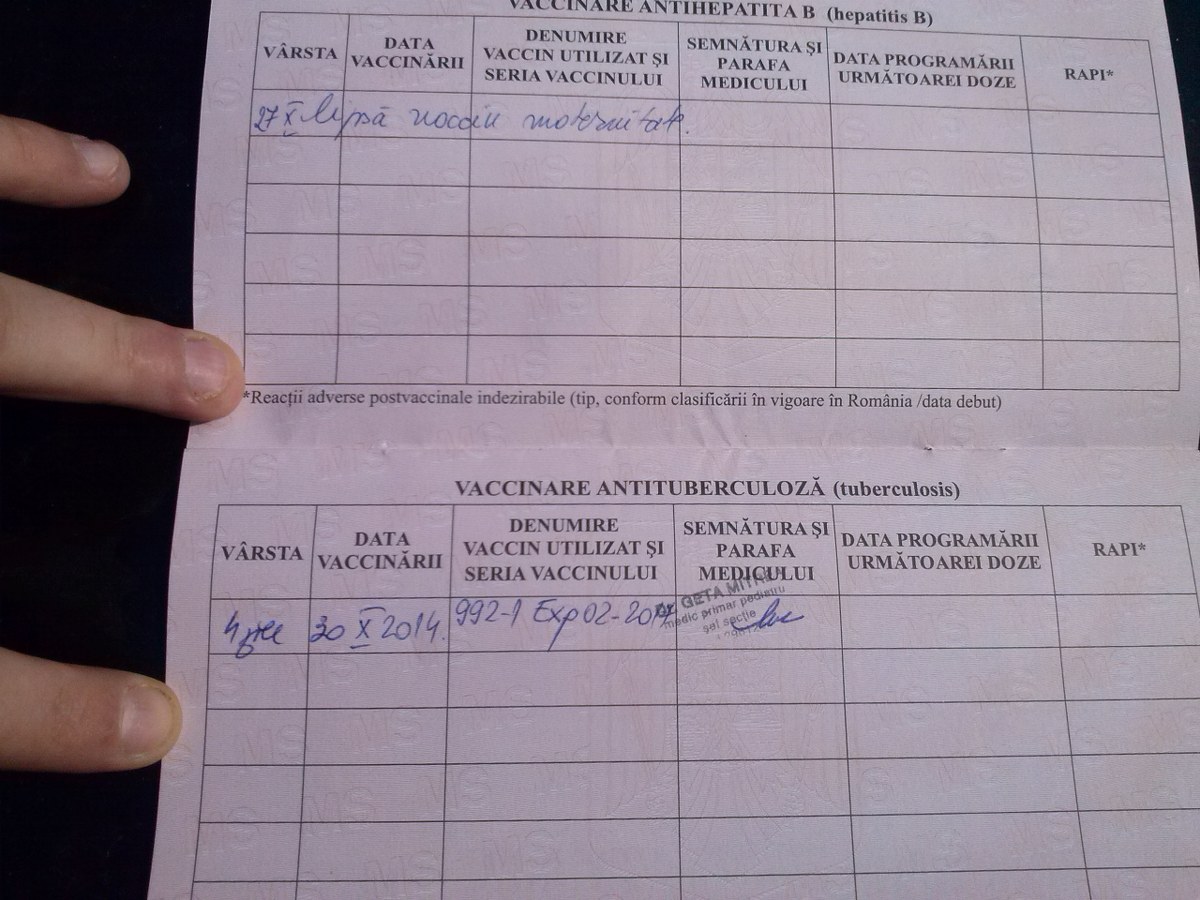 VACCINARE ANTIHEPATITA B (hepatitis B)
VÂRSTA
DATA
VACCINĂRII
DENUMIRE
VACCIN UTILIZAT ŞI
SERIA VACCINULUI
SEMNĂTURA ŞI
PARAFA
MEDICULUI
DATA PROGRAMĂRII
URMĂTOAREI DOZE
RAPI*
27 X lipsă vaccin maternitate.
*Reacții adverse postvaccinale indezirabile (tip, conform clasificării în vigoare în România /data debut)
VACCINARE ANTITUBERCULOZĂ (tuberculosis)
VÂRSTA
DATA
VACCINĂRII
DENUMIRE
VACCIN UTILIZAT ŞI
SERIA VACCINULUI
SEMNĂTURA ŞI
PARAFA
MEDICULUI
DATA PROGRAMĂRII
URMĂTOAREI DOZE
RAPI*
4 zile
30 X 2014.
992-1 Exp 02-
GETA
medic primar pediatru
şef secţie